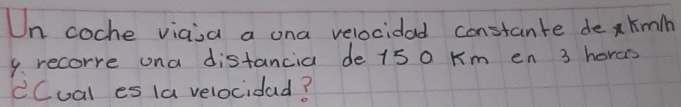 Un coche viaja a una velocidad constante de x km/h
y recorre una distancia de 150 Km en 3 horas
¿Cual es la velocidad?